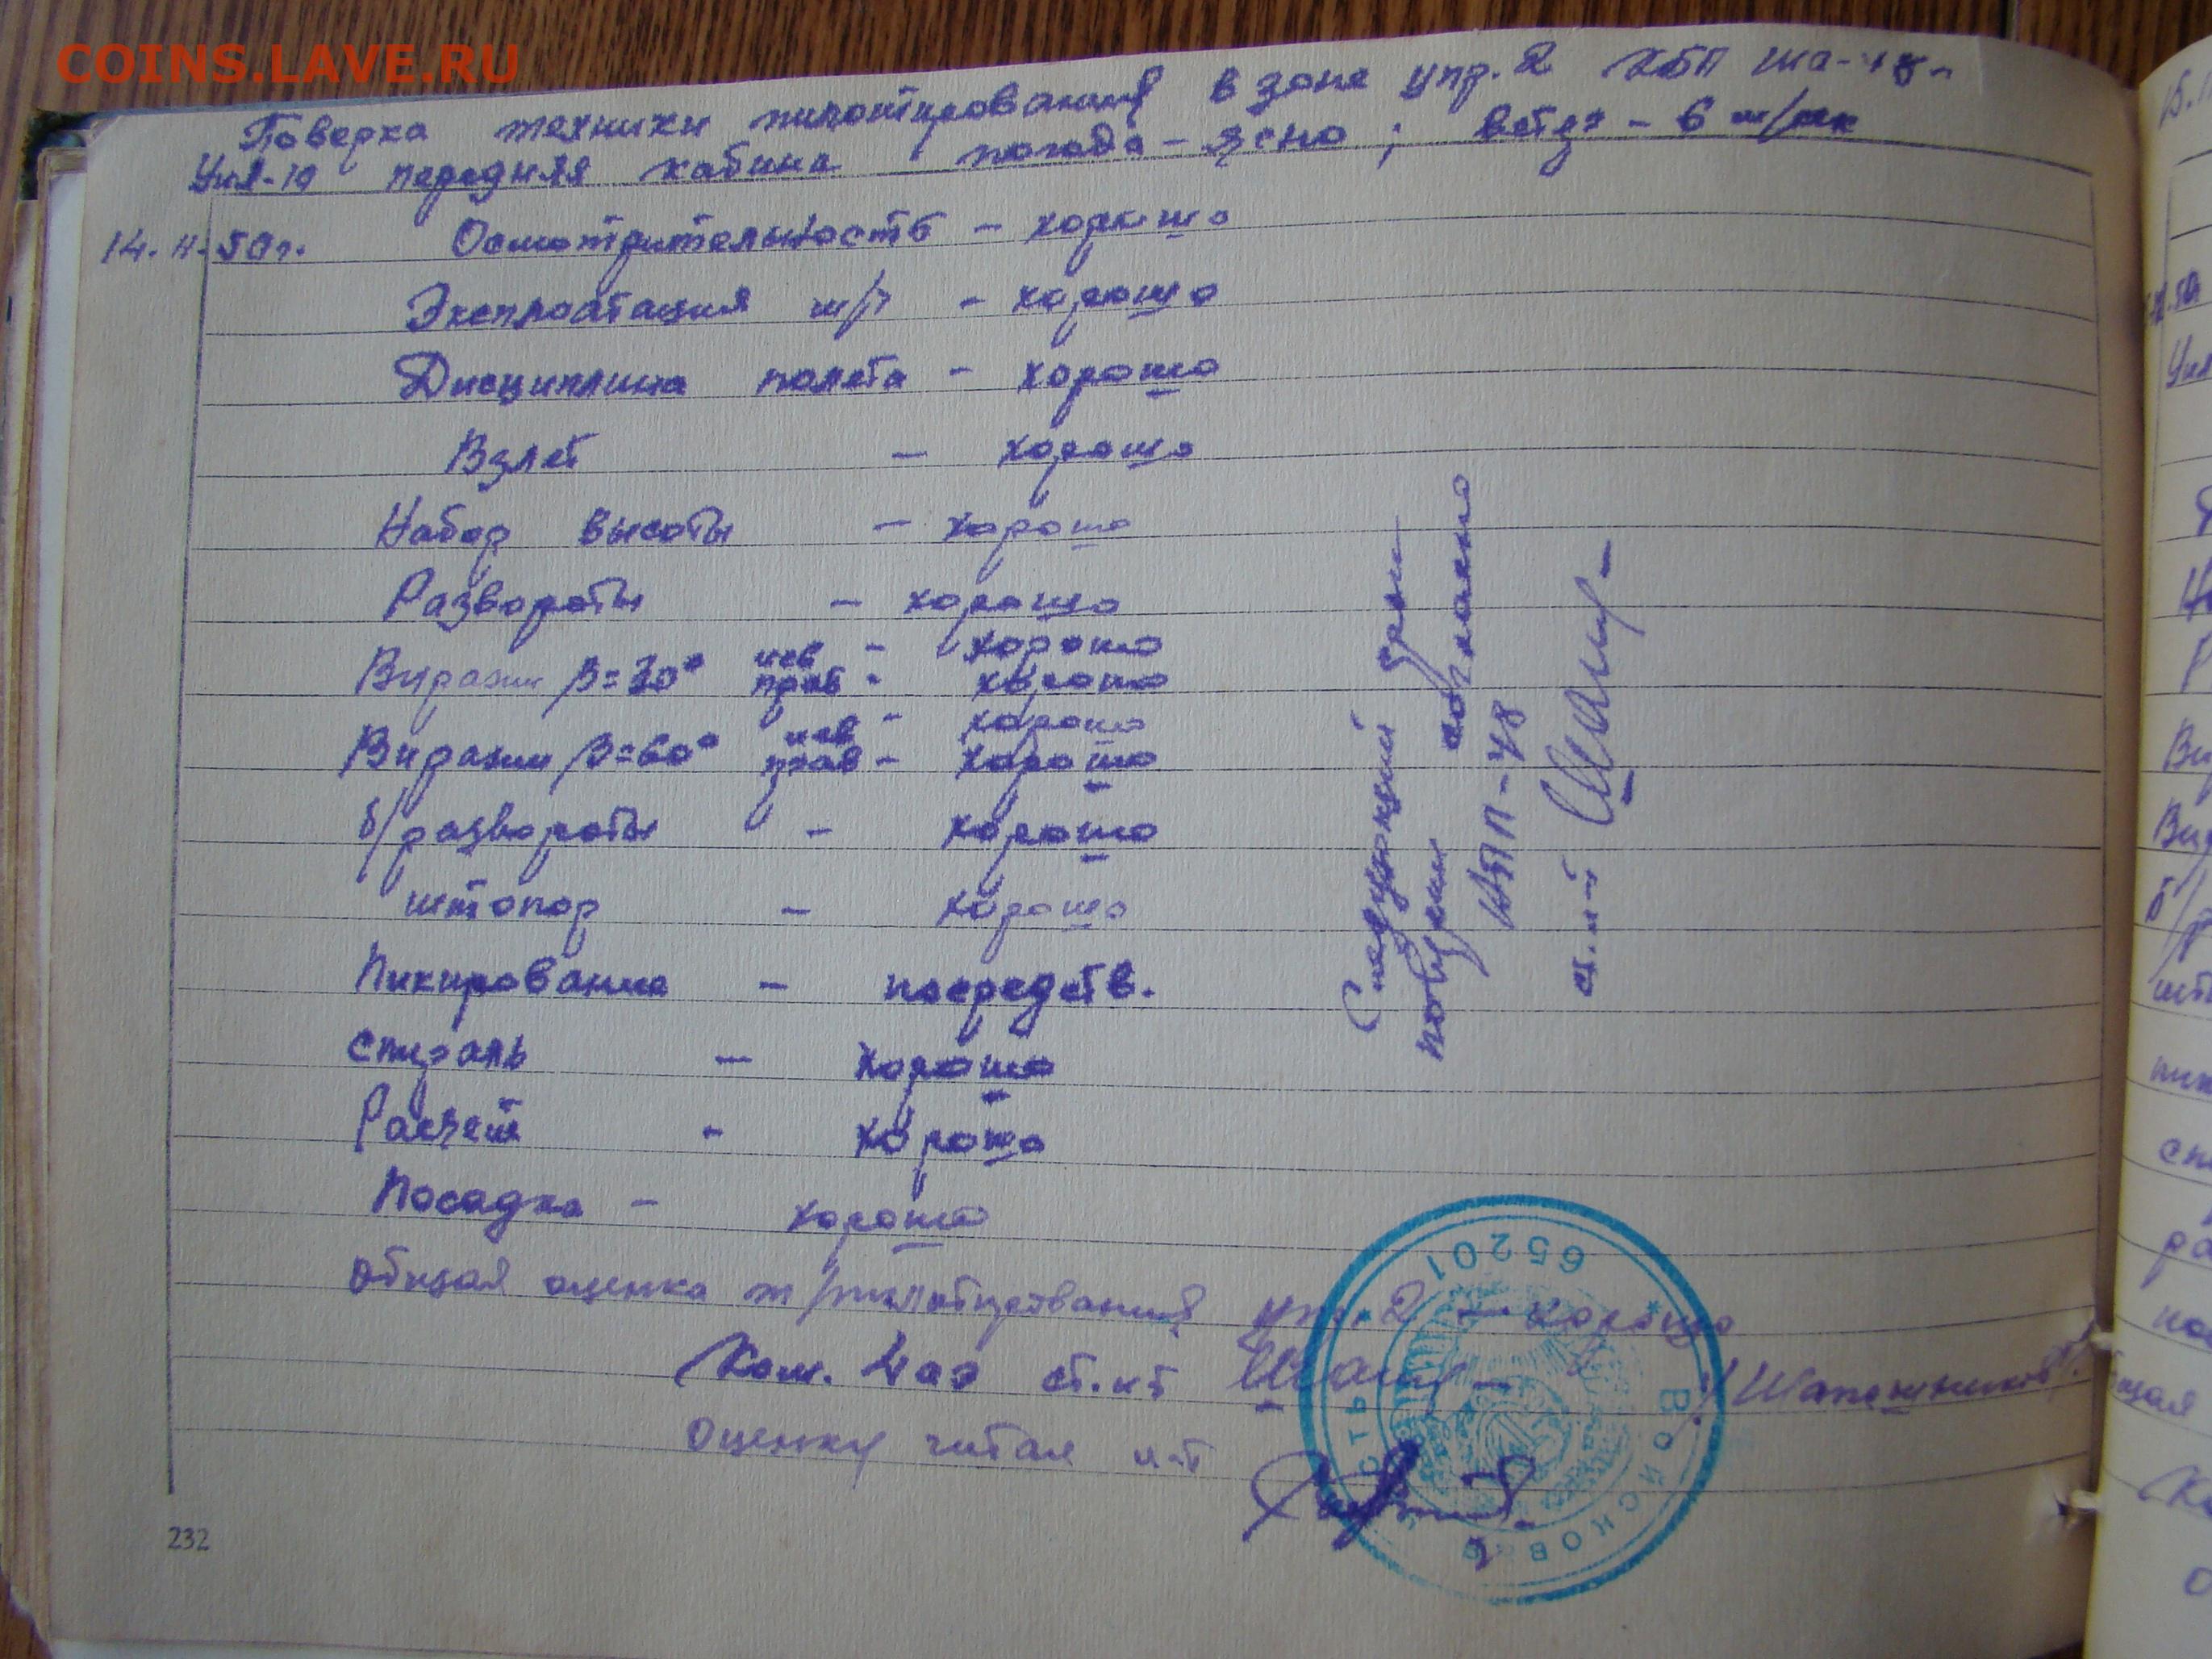 COINS.LAVE.RU
Поверка техники пилотирования в зоне упр. 2 КБП ША-48г
Уил-10 передняя кабина погода - ясно; ветер - 6 м/сек
14. 50г. Осмотрительность - хорошо
Эксплоатация м/ч - хорошо
Дисциплина полета - хорошо
Взлет - хорошо
Набор высоты - хорошо
Развороты - хорошо
Виражи β=30° лев - хорошо
прав - хорошо
Виражи β=60° лев - хорошо
прав - хорошо
б/развороты - хорошо
штопор - хорошо
Пикирование - посредств.
Спираль - хорошо
Расчет - хорошо
Посадка - хорошо
Общая оценка т/пилотирования упр. 2 - хорошо
Ком. 4 аэ ст. л-т /Шапошников/
Оценку читал л-т
Следующий срок
поверки согласно
КБП-48
ст. л-т
65201
ВОЙСКОВАЯ ЧАСТЬ
232